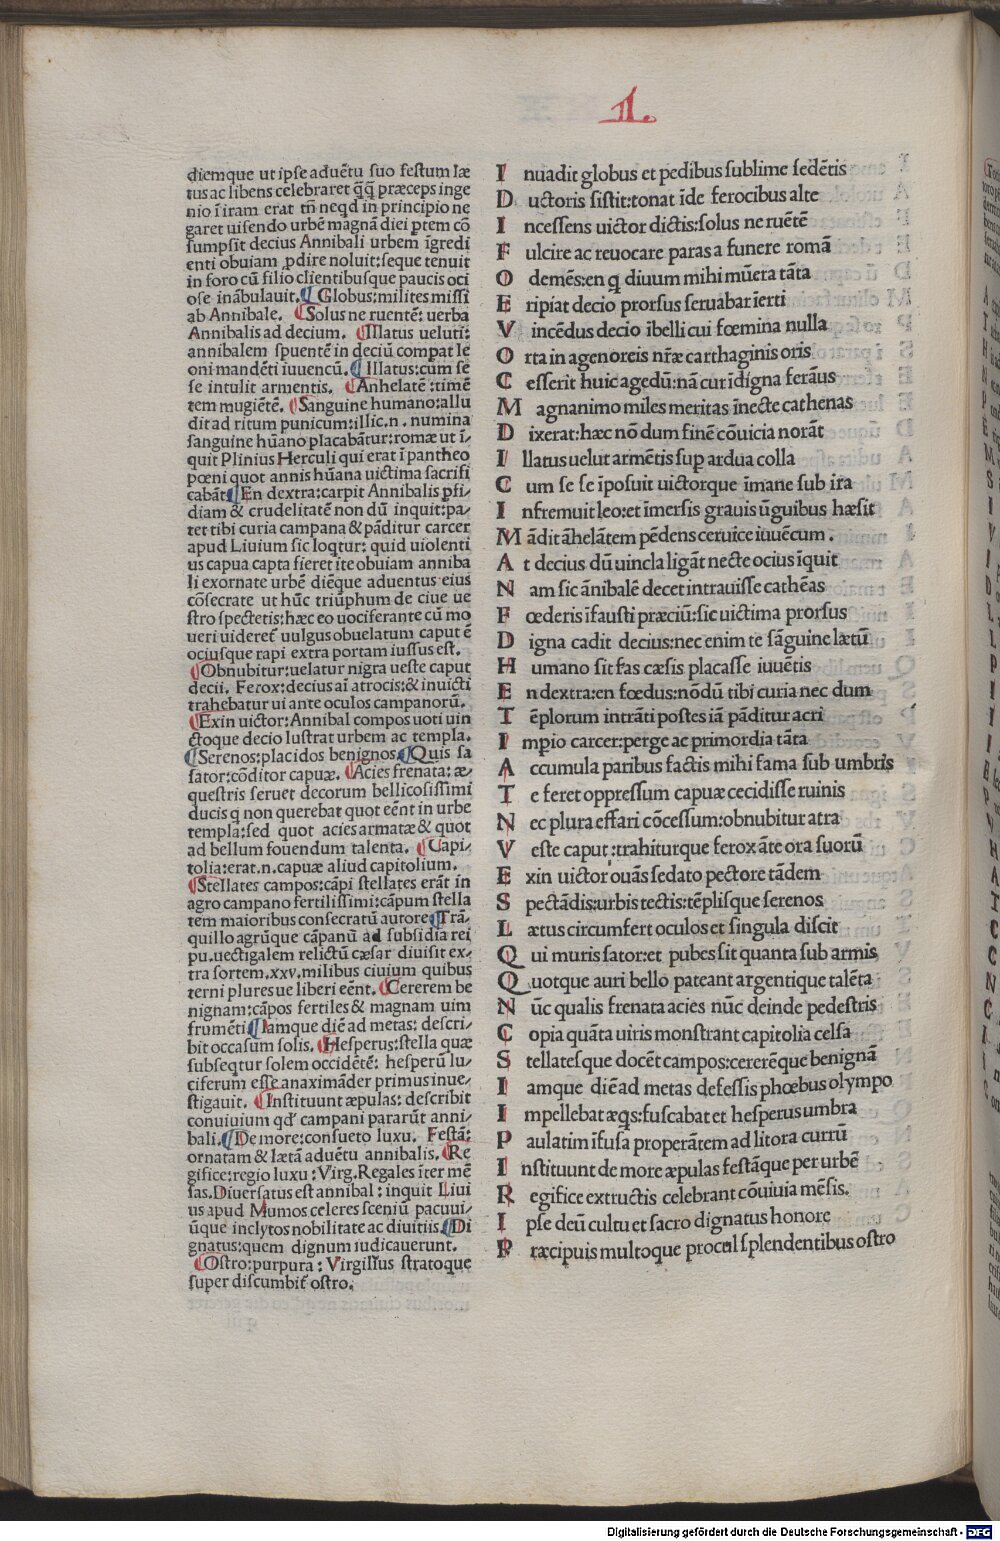 1.
diemque ut ipse aduẽtu suo festum læ
tus ac libens celebraret q̃q̃ præceps inge
nio ĩ iram erat tñ neqd in principio ne
garet uisendo urbẽ magnã diei ꝑtem cõ
sumpsit decius Annibali urbem ĩgredi
enti obuiam ꝓdire noluit: seque tenuit
in foro cũ filio clientibusque paucis oci
ose inãbulauit. ¶ Globus: milites missi
ab Annibale. ¶ Solus ne ruentẽ: uerba
Annibalis ad decium. ¶ Illatus ueluti:
annibalem spuentẽ in deciũ compat le
oni mandẽti iuuencũ. ¶ Illatus: cum se
se intulit armentis. ¶ Anhelatẽ: timẽ
tem mugiẽtẽ. ¶ Sanguine humano: allu
dit ad ritum punicum: illic. n. numina
sanguine hũano placabãtur: romæ ut ĩ-
quit Plinius Herculi qui erat ĩ pantheo
pœni quot annis hũana uictima sacrifi
cabãt ¶ En dextra: carpit Annibalis ꝑfi-
diam & crudelitatẽ non dũ inquit: pa-
tet tibi curia campana & pãditur carcer
apud Liuium sic loqtur: quid uiolenti
us capua capta fieret ite obuiam anniba
li exornate urbẽ diẽque aduentus eius
cõsecrate ut hũc triũphum de ciue ue
stro spectetis: hæc eo uociferante cũ mo
ueri uideret uulgus obuelatum caput ẽ
ociusque rapi extra portam iussus est.
¶ Obnubitur: uelatur nigra ueste caput
decii. Ferox: decius aĩ atrocis: & inuicti
trahebatur ui ante oculos campanorũ.
¶ Exin uictor: Annibal compos uoti uin
ctoque decio lustrat urbem ac templa.
¶ Serenos: placidos benignos ¶ Quis sa
sator: cõditor capuæ. ¶ Acies frenata: æ-
questris seruet decorum bellicosissimi
ducis q non querebat quot eẽnt in urbe
templa: sed quot acies armatæ & quot
ad bellum fouendum talenta. ¶ Capi-
tolia: erat. n. capuæ aliud capitolium.
¶ Stellates campos: cãpi stellates erãt in
agro campano fertilissimi: cãpum stella
tem maioribus consecratũ autore ¶ Trã-
quillo agrũque cãpanũ ad subsidia rei
pu. uectigalem relictũ cæsar diuisit ex-
tra sortem. xxv. milibus ciuium quibus
terni plures ue liberi eẽnt. ¶ Cererem be
nignam: cãpos fertiles & magnam uim
frumẽti ¶ Iamque diẽ ad metas: descri-
bit occasum solis. ¶ Hesperus: stella quæ
subseqtur solem occidẽtẽ: hesperũ lu-
ciferum esse anaximãder primus inue-
stigauit. ¶ Instituunt æpulas: describit
conuiuium qđ campani pararũt anni-
bali. ¶ De more: consueto luxu. Festã:
ornatam & lætã aduẽtu annibalis. ¶ Re
gifice: regio luxu: Virg. Regales ĩter mẽ
sas. Diuersatus est annibal: inquit Liui
us apud Mumos celeres sceniũ pacuui-
ũque inclytos nobilitate ac diuitiis ¶ Di
gnatus: quem dignum iudicauerunt.
¶ Ostro: purpura: Virgilius stratoque
super discumbit ostro.
I nuadit globus et pedibus sublime sedẽtis
D uctoris sistit: tonat ĩde ferocibus alte
I ncessens uictor dictis: solus ne ruẽtẽ
F ulcire ac reuocare paras a funere romã
O demẽs: en q diuum mihi mũera tãta
E ripiat decio prorsus seruabar ĩerti
V incẽdus decio ĩbelli cui fœmina nulla
O rta in agenoreis nr̃æ carthaginis oris
C esserit huic agedũ: nã cur ĩdigna ferãus
M agnanimo miles meritas ĩnecte cathenas
D ixerat: hæc nõ dum finẽ cõuicia norãt
I llatus uelut armẽtis sup ardua colla
C um se se ĩposuit uictorque ĩmane sub ira
I nfremuit leo: et ĩmersis grauis ũguibus hæsit
M ãdit ãhelãtem pẽdens ceruice iuuẽcum.
A t decius dũ uincla ligãt necte ocius ĩquit
N am sic ãnibalẽ decet intrauisse cathẽas
F œderis ĩfausti præciũ: sic uictima prorsus
D igna cadit decius: nec enim te sãguine lætũ
H umano sit fas cæsis placasse iuuẽtis
E n dextra: en fœdus: nõdũ tibi curia nec dum
T ẽplorum intrãti postes iã pãditur acri
I mpio carcer: perge ac primordia tãta
A ccumula paribus factis mihi fama sub umbris
T e feret oppressum capuæ cecidisse ruinis
N ec plura effari cõcessum: obnubitur atra
V este caput: trahiturque ferox ãte ora suorũ
E xin uictor ouãs sedato pectore tãdem
S pectãdis: urbis tectis: tẽplisque serenos
L ætus circumfert oculos et singula discit
Q ui muris sator: et pubes sit quanta sub armis
Q uotque auri bello pateant argentique talẽta
N ũc qualis frenata acies nũc deinde pedestris
C opia quãta uiris monstrant capitolia celsa
S tellatesque docẽt campos: cererẽque benignã
I amque diẽ ad metas defessis phœbus olympo
I mpellebat æqs: fuscabat et hesperus umbra
P aulatim ĩfusa properãtem ad litora currũ
I nstituunt de more æpulas festãque per urbẽ
R egifice extructis celebrant cõuiuia mẽsis.
I pse deũ cultu et sacro dignatus honore
P ræcipuis multoque procul splendentibus ostro
Digitalisierung gefördert durch die Deutsche Forschungsgemeinschaft - DFG